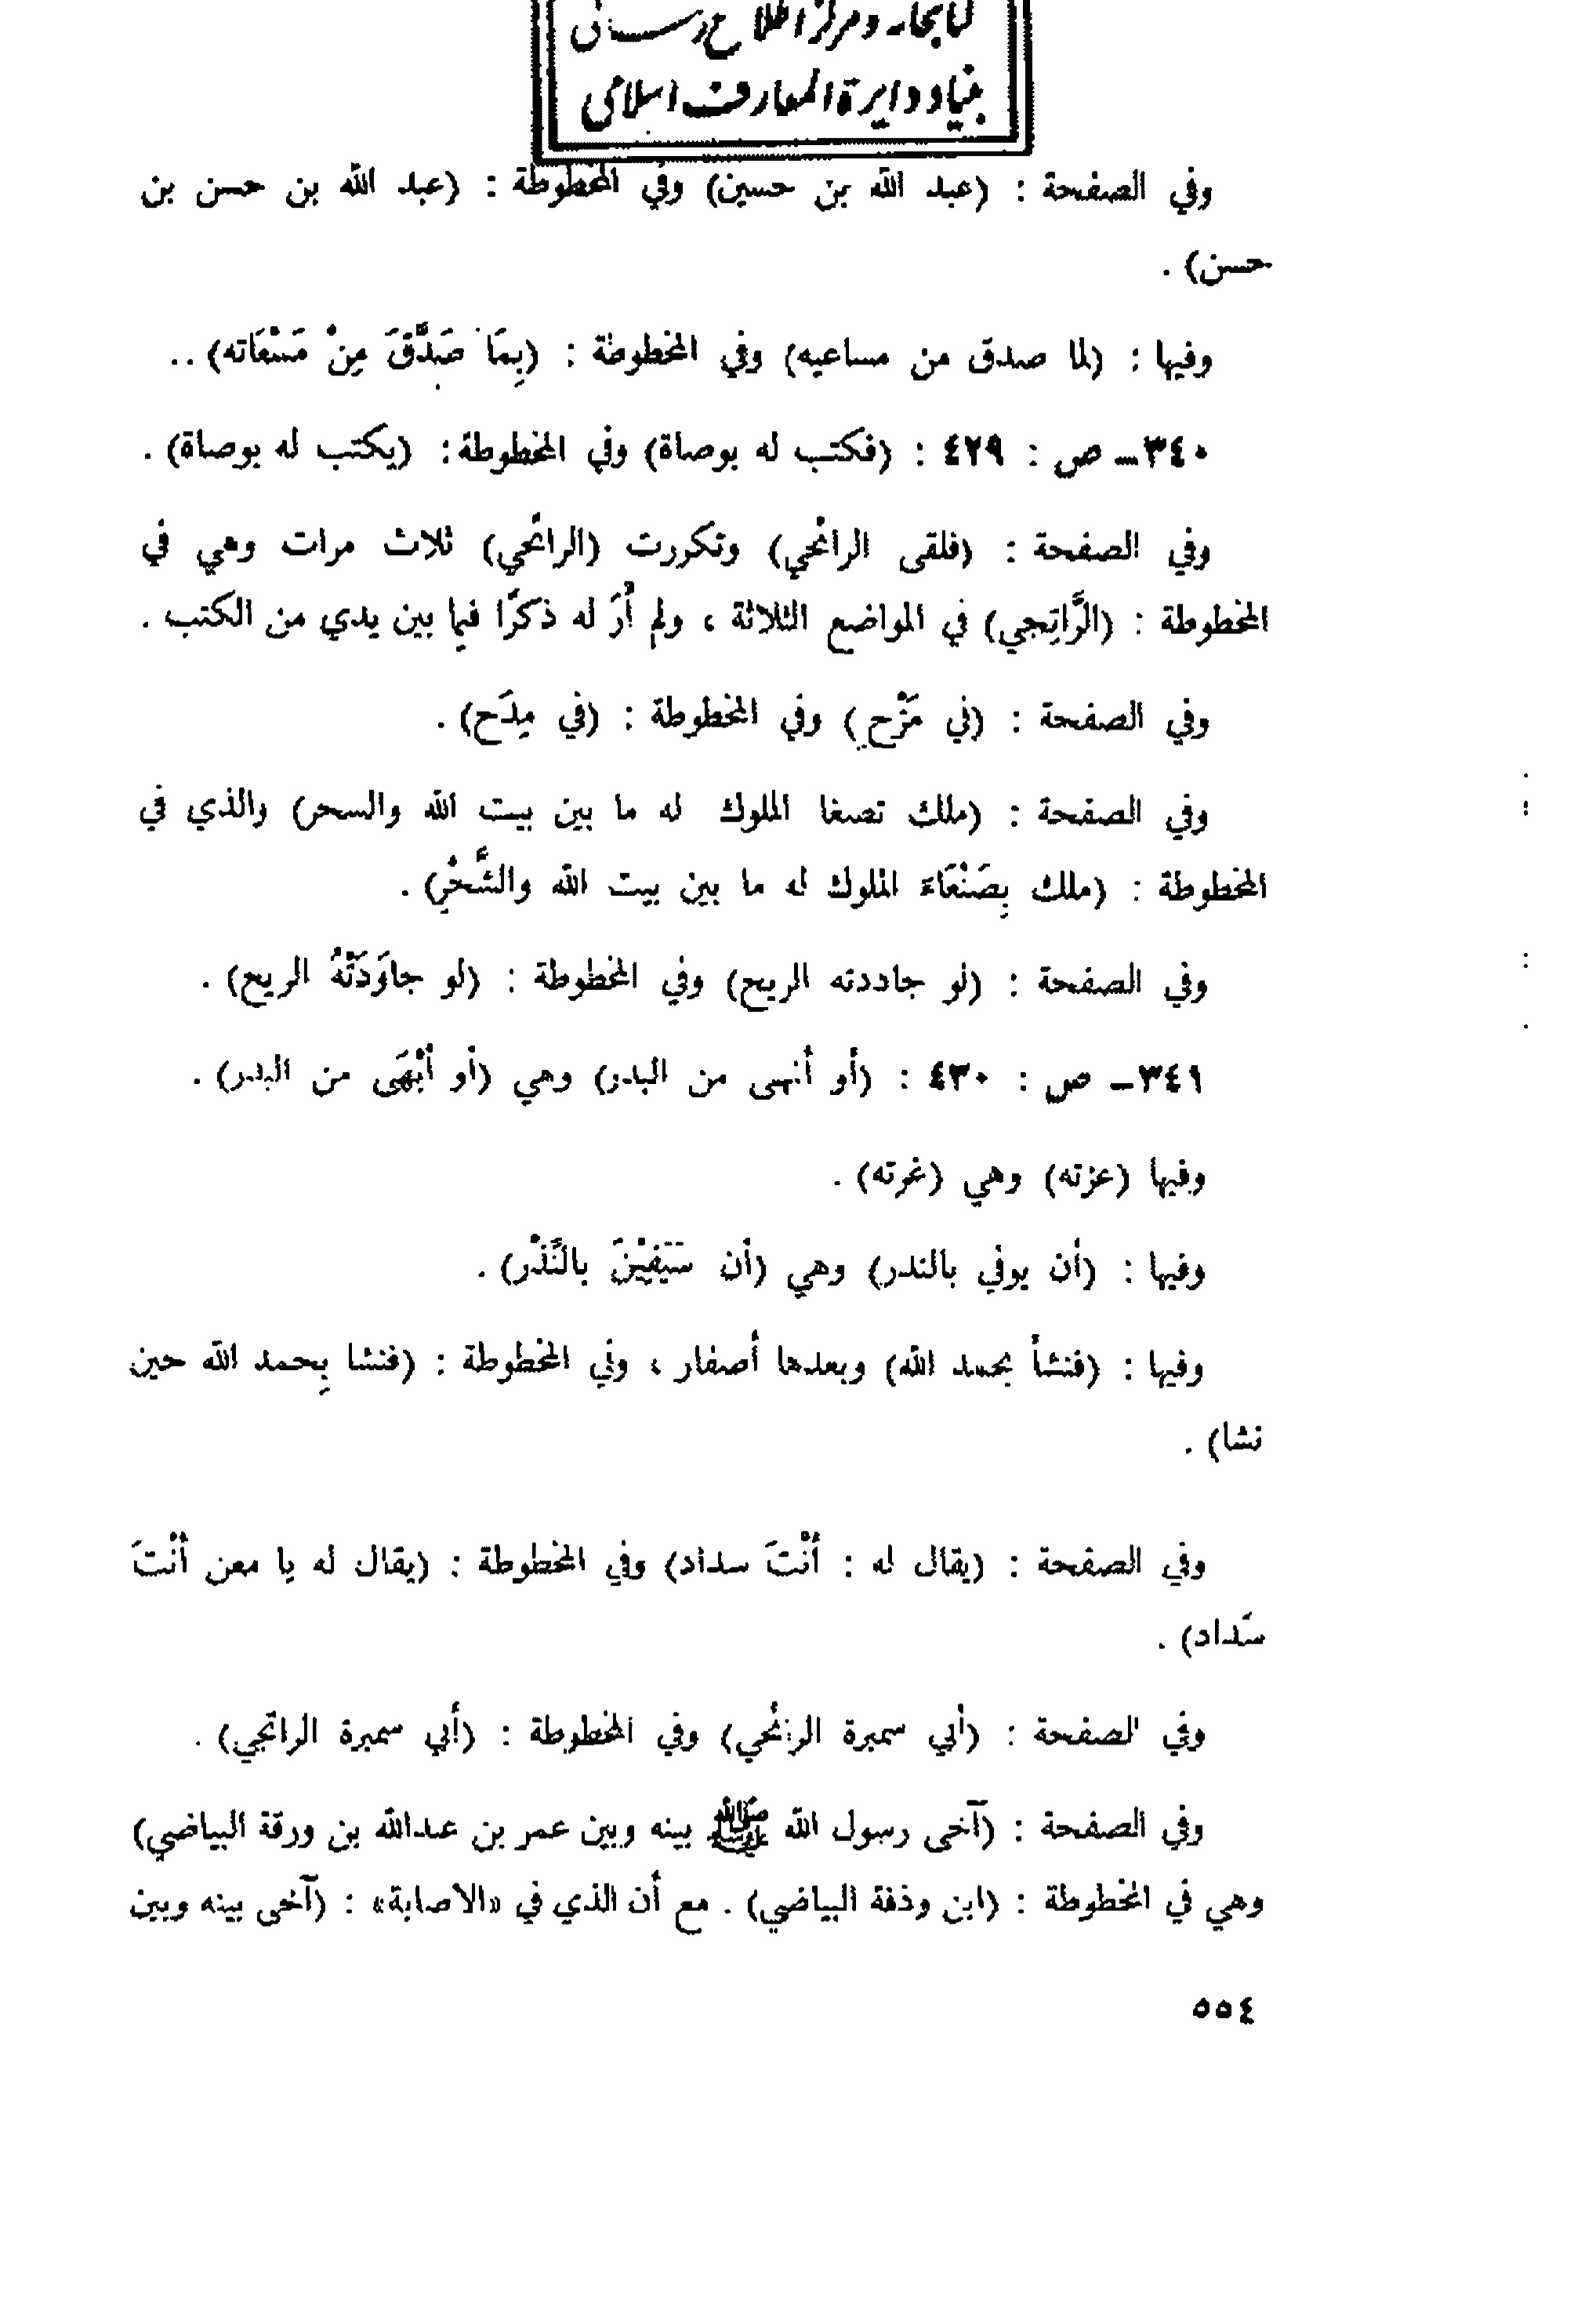 كتابخانه و مركز اطلاع رسانى
بنياد دايرة المعارف اسلامى
وفي الصفحة : (عبد الله بن حسين) وفي المخطوطة : (عبد الله بن حسن بن
حسن) .
وفيها : (لما صدق من مساعيه) وفي المخطوطة : (بِمَا صَدَّقَ مِنْ مَسْعَاته) ..
٣٤٠ـ ص : ٤٢٩ : (فكتب له بوصاة) وفي المخطوطة : (يكتب له بوصاة) .
وفي الصفحة : (فلقى الرانْحي) وتكررت (الرانْحي) ثلاث مرات وهي في
المخطوطة : (الرَّاتِجي) في المواضع الثلاثة ، ولم أَرَ له ذكرًا فيما بين يدي من الكتب .
وفي الصفحة : (في مَزْح) وفي المخطوطة : (في مِدَح) .
وفي الصفحة : (ملك تصغا الملوك له ما بين بيت الله والسحر) والذي في
المخطوطة : (ملك بِصَنْعَاءَ الملوك له ما بين بيت الله والشَّحْرِ) .
وفي الصفحة : (لو جاددته الريح) وفي المخطوطة : (لو جاوَدَتْهُ الريح) .
٣٤٩ـ ص : ٤٣٠ : (أو أنهى من البدر) وهي (أو أَبْهَى من البدر) .
وفيها (عزته) وهي (غرته) .
وفيها : (أن يوفي بالندر) وهي (أن سَتَفِيْنَ بالنَّذْر) .
وفيها : (فنشأ بحمد الله) وبعدها أصفار ، وفي المخطوطة : (فنشا بِحمد الله حين
نشا) .
وفي الصفحة : (يقال له : أنْتَ سداد) وفي المخطوطة : (يقال له يا معن أنْتَ
سَداد) .
وفي الصفحة : (أبي سمبرة الرانْحي) وفي المخطوطة : (أبي سمبرة الراتجي) .
وفي الصفحة : (آخى رسول الله ﷺ بينه وبين عمر بن عبدالله بن ورقة البياضي)
وهي في المخطوطة : (ابن وذفة البياضي) . مع أن الذي في «الاصابة» : (آخى بينه وبين
٥٥٤